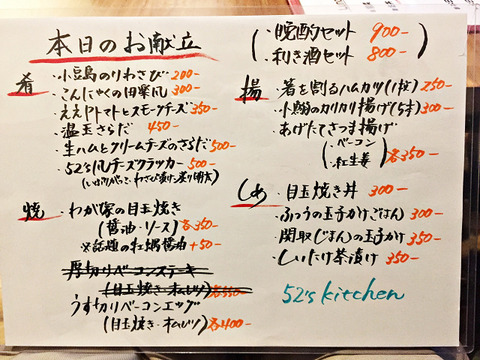 本日のお献立
肴
・小豆島のりわさび 200-
・こんにゃくの田楽風 300-
・ええトマトとスモークチーズ 350-
・温玉さらだ 450-
・生ハムとクリームチーズのさらだ 500-
・52's風チーズクラッカー 500-
焼
・わが家の目玉焼き
(醤油・ソース) 各350-
※話題の牡蠣醤油 +50-
厚切りベーコンステーキ
(目玉焼き・オムレツ) 各550-
うす切りベーコンエッグ
(目玉焼き・オムレツ) 各400-
・晩酌セット 900-
・利き酒セット 800-
揚
・箸を割るハムカツ(1枚) 250-
・小鯵のカリカリ揚げ(5才) 300-
・あげたてさつま揚げ
(・ベーコン
・紅生姜) 各350-
しめ
・目玉焼き丼 300-
・ふつうの玉子かけごはん 300-
・関取じまんの玉子かけ 350-
・しいたけ茶漬け 350-
52's kitchen